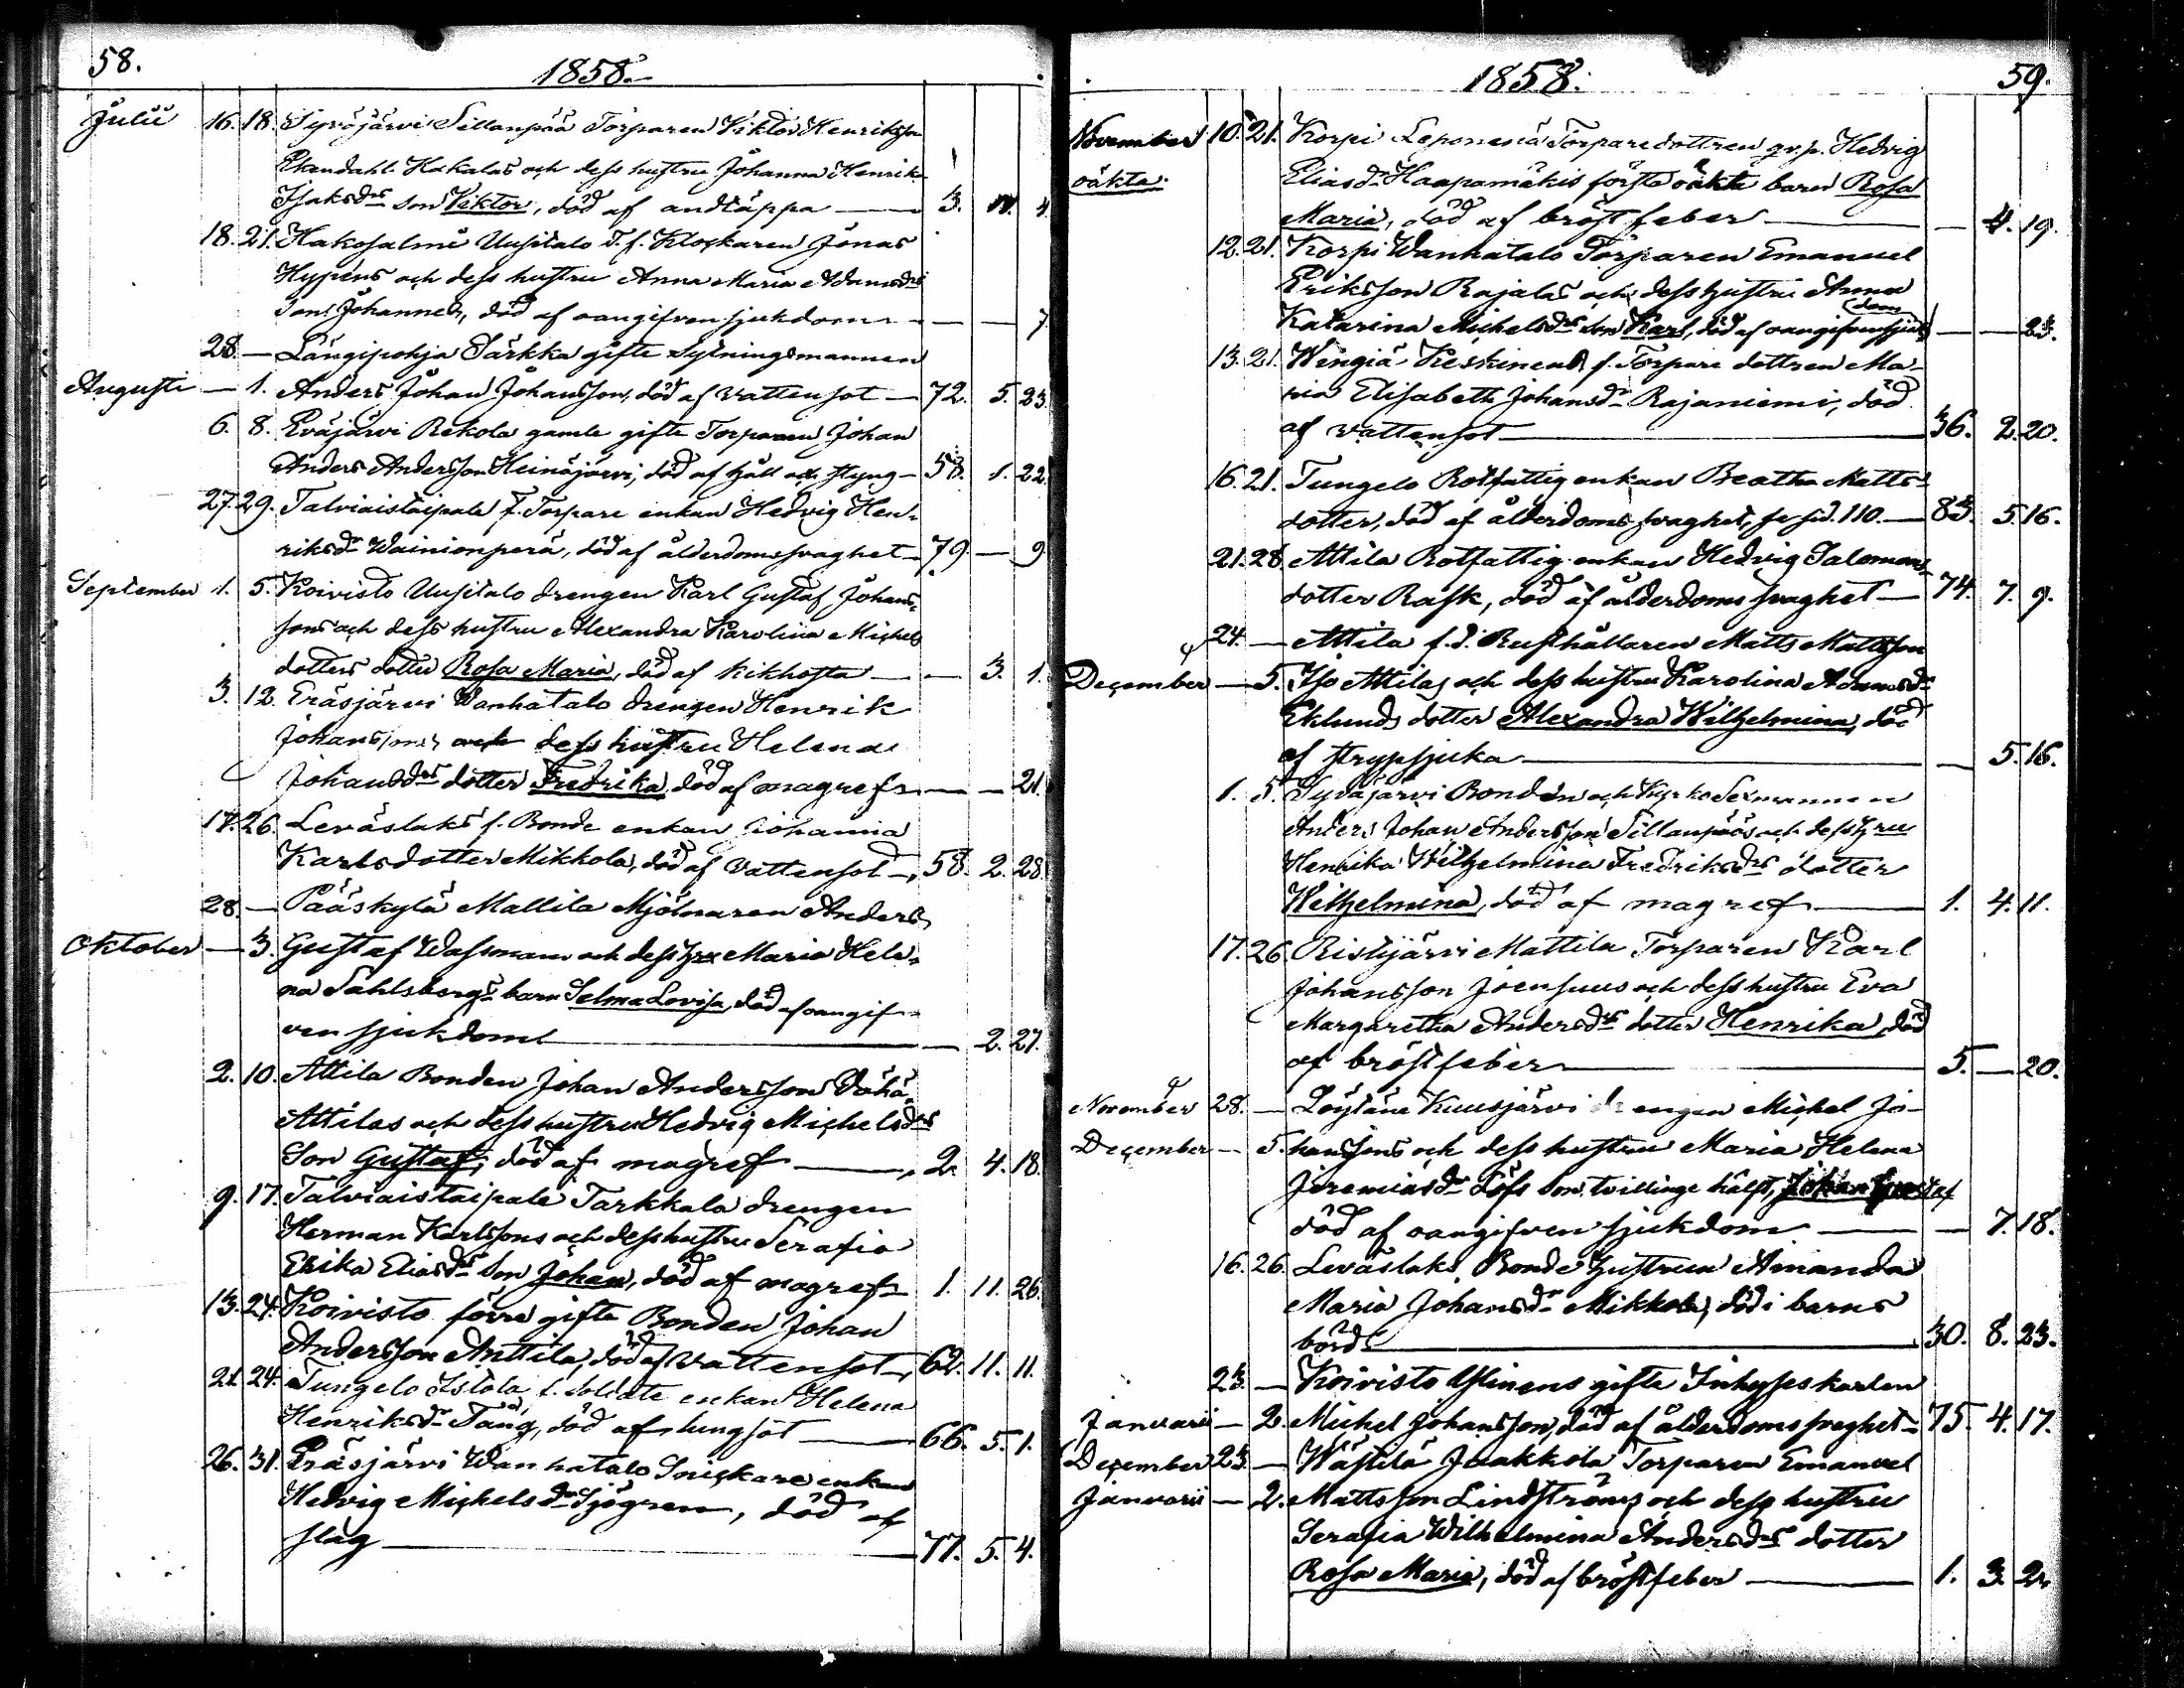 58.
1858.
Julii 16. 18. Syväjärvi Sillanpää Torparen Viktor Henriksson
Ekendahl Kakalas och dess hustru Johanna Henrika
Isaksdrs son Viktor, död af andtäppa — 3. 4.
18. 21. Hakosalmi Uusitalo T. f. Klockaren Jonas
Hypéns och dess hustru Anna Maria Adamsdrs
Son Johannes, död af oangifven sjukdom — — 7
28. — Längipohja Särkka gifte Sytningsmannen
Augusti — 1. Anders Johan Johansson, död af vattensot — 72. 5. 23.
6. 8. Eväjärvi Rekola gamle gifte Torparen Johan
Anders Andersson Heinäjärvi, död af håll och styng — 58. 1. 22.
27. 29. Talviaistaipale F. Torpare enkan Hedvig Hen-
riksdr Wainionperä, död af ålderdomssvaghet — 79 — 9
September 1. 5. Koivisto Uusitalo drengen Karl Gustaf Johans-
sons och dess hustru Alexandra Karolina Michels
dotters dotter Rosa Maria, död af kikhosta — — 3. 1.
3. 12. Eräsjärvi Wanhatalo drengen Henrik
Johanssons och dess hustru Helena
Johansdrs dotter Fredrika, död af magref — — 21.
17. 26. Leväslaks f. Bonde enkan Johanna
Karlsdotter Mikkola, död af vattensot — 58. 2. 28.
28. — Pääskylä Mallila Mjölnaren Anders
Oktober — 3. Gustaf Wassmans och dess hru Maria Hele-
na Sahlsbergs barn Selma Lovisa, död af oangif-
ven sjukdom — — 2. 27.
2. 10. Attila Bonden Johan Andersson Vähä-
Attilas och dess hustru Hedvig Michelsdrs
Son Gustaf, död af magref — 2. 4. 18.
9. 17. Talviaistaipale Tarkkala drengen
Herman Karlssons och dess hustru Serafia
Erika Eliasdrs son Johan, död af magref — 1. 11. 26.
13. 24. Koivisto förra gifte Bonden Johan
Andersson Anttila, död af vattensot — 62. 11. 11.
21. 24. Jungelo Istola f. Soldate enkan Helena
Henriksdr Tång, död af lungsot — 66. 5. 1.
26. 31. Eräsjärvi Wanhatalo Snickare enkan
Hedvig Michelsdr Sjögren, död af
slag — 77. 5. 4.
1858.
59.
November 10. 21. Korpi Leponens Torparedottren qv.p. Hedvig
oäkta. Eliasdr Haapamäkis första oäkta barn Rosa
Maria, död af bröstfeber — — 4. 19.
12. 21. Korpi Wanhatalo Torparen Emanuel
Eriksson Rajalas och dess hustru Anna
Katarina Michelsdrs son Karl, död af oangifven sjukdom — — 23.
13. 21. Wengiä Keskinens f. Torpare dottren Ma-
ria Elisabeth Johansdr Rajaniemi, död
af vattensot — 36. 2. 20.
16. 21. Jungelo Rotfattig enkan Beatha Matts-
dotter, död af ålderdoms svaghet, se sid. 110. — 83. 5. 16.
21. 28. Attila Rotfattig enkan Hedvig Salomons-
dotter Rask, död af ålderdoms svaghet — 74. 7. 9.
24. — Attila f. d. Rusthållaren Matts Mattsson
December — 5. Iso Attilas och dess hustru Karolina Adamsdr
Eklunds dotter Alexandra Wilhelmina, död
af strypsjuka — — 5. 16.
1. 5. Syväjärvi Bonden och Kyrko Sexmannen
Anders Johan Andersson Sillanpääs och dess hru
Henrika Wilhelmina Fredriksdrs dotter
Wilhelmina, död af magref — 1. 4. 11.
17. 26. Ristijärvi Mattila Torparen Karl
Johansson Joensuus och dess hustru Eva
Margaretha Andersdrs dotter Henrika, död
af bröstfeber — 5. — 20.
November 28. — Löytäne Kuusjärvi drengen Michel Jo-
December — 5. hanssons och dess hustru Maria Helena
Jeremiasdr Löfs son, tvillinge hälft, Johan Gustaf
död af oangifven sjukdom — — 7. 18.
16. 26. Leväslaks Bonde hustrun Amanda
Maria Johansdr Mikkola, död i barns
börd — 30. 8. 23.
23. — Koivisto Ylinens gifte Inhyseskarlen
Januarii — 2. Michel Johansson, död af ålderdoms svaghet — 75. 4. 17.
December 23. — Wästilä Jaakkola Torparen Emanuel
Januarii — 2. Mattsson Lindströms och dess hustru
Serafia Wilhelmina Andersdrs dotter
Rosa Maria, död af bröstfeber — 1. 3. 2